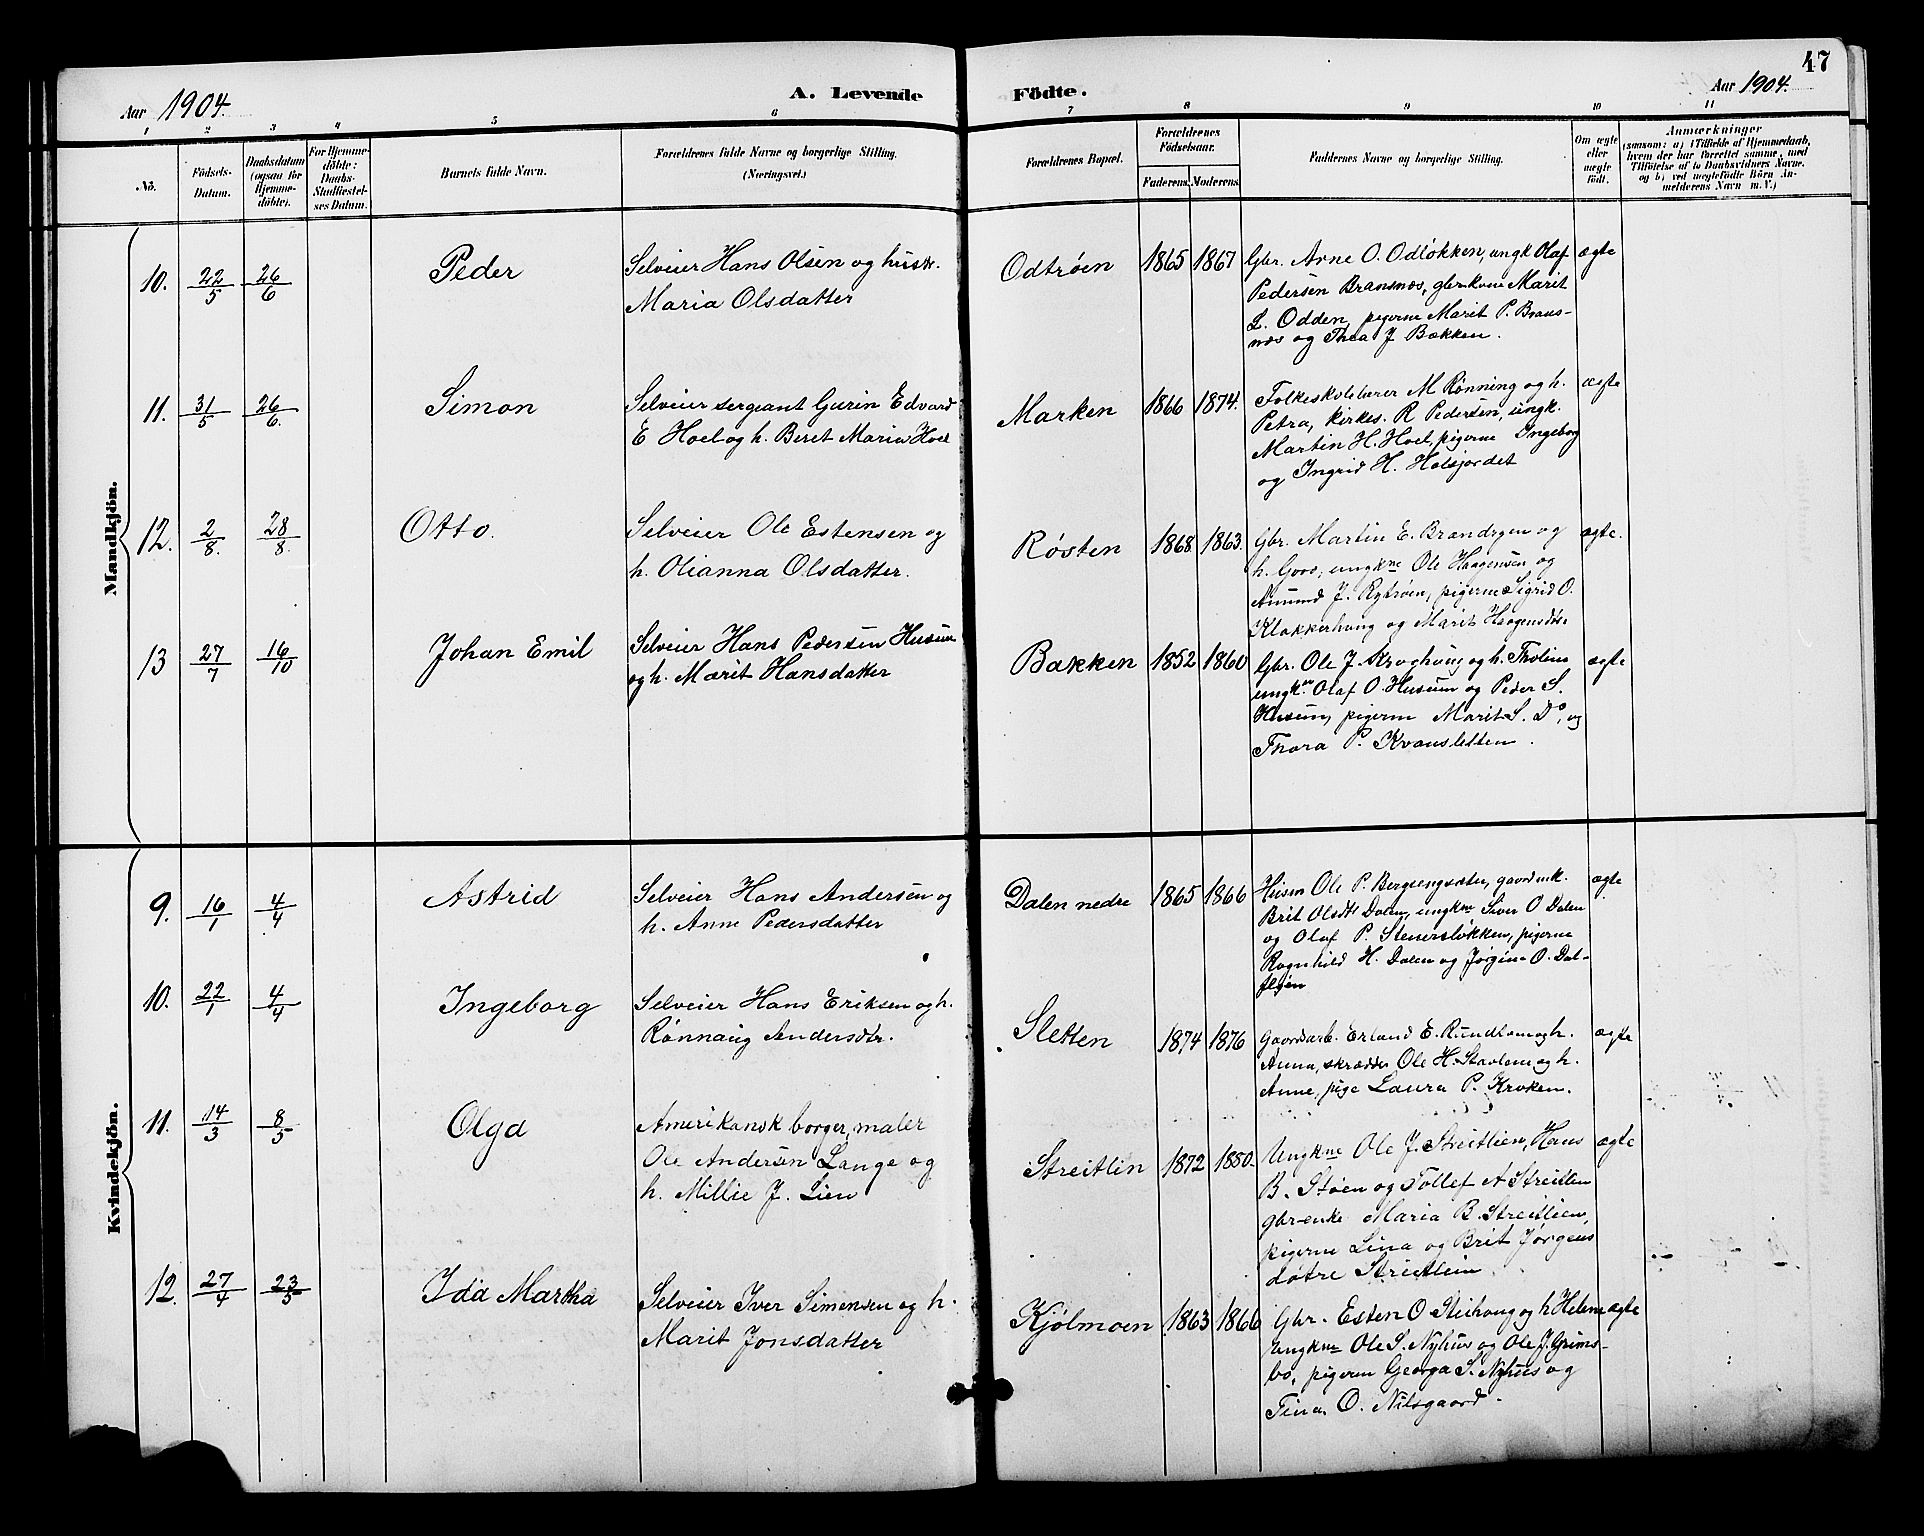 47
Aar 1904.
A. Levende
Födte.
Aar 1904.
1 2 3 4 5 6 7 8 9 10 11
No.
Födsels-
Datum.
Daabsdatum
(ogsaa for
Hjemme-
döbte).
For Hjemme-
döbte:
Daabs-
Stadfæstel-
ses Datum.
Barnets fulde Navn.
Forældrenes fulde Navne og borgerlige Stilling.
(Næringsvei.)
Forældrenes Bopæl.
Forældrenes
Födselsaar.
Faderens.
Moderens.
Faddernes Navne og borgerlige Stilling.
Om ægte
eller
uægte
födt.
Anmærkninger
(saasom: a) i Tilfælde af Hjemmedaab,
hvem der har forrettet samme, med
Tilföielse af to Daabsvidners Navne.
og b) ved uægtefödte Börn An-
melderens Navn m. V.)
Mandkjön.
10. 22/5 26/6 Peder
Selveier Hans Olsen og hustr.
Maria Olsdatter
Odtrøen 1865 1867
Gbr. Arne O. Odløkken, ungk Olaf
Pedersen Bransnæs, gbr.kone Marit
L. Odden, pigerne Marit P. Brans-
næs og Thea J Bakken.
ægte
11. 31/5 26/6. Simon
Selveier sergeant Gurin Edvard
E Hoel og h. Beret Maria Hoel
Marken 1866 1874.
Folkeskolelærer M Rønning og h.
Petra, kirkes. R Pedersen, ungk.
Martin H. Hoel, pigerne Ingeborg
og Ingrid H. Holsjordet
ægte
12. 2/8. 28/8. Otto.
Selveier Ole Estensen og
h. Olianna Olsdatter.
Røsten 1868 1863.
Gbr. Martin E. Brandryen og
h. Goro, ungkne Ole Haagensen og
Amund J. Rytrøen, pigerne Sigrid O.
Klokkerhaug og Marit Haagensdtr
ægte.
13 27/7 16/10 Johan Emil
Selveier Hans Pedersen Husum
og h. Marit Hansdatter
Bakken 1852 1860
Gbr. Ole J. Kroghaug og h. Tholine
ungkne Olaf O. Husum og Peder S.
Husum, pigerne Marit S. Do, og
Thora P. Kvansletten.
ægte
Kvindekjön.
9. 16/1 4/4 Astrid
Selveier Hans Andersen og
h. Anne Pedersdatter
Dalen nedre 1865 1866
Husm Ole P. Bergsengsæter, gaardenk.
Brit Olsdtr Dalen, ungkne Siver O Dalen
og Olaf P. Steiersløkken, pigerne
Ragnhild H. Dalen og Jørgine O. Dal-
fløien
ægte
10. 22/1 4/4 Ingeborg
Selveier Hans Eriksen og h.
Rønnaug Andersdtr.
Sletten 1874 1876
Gaardarb. Erland E. Rundtom og h.
Anna, skrædder Ole H. Stavlem og h.
Anne, pige Laura P. Kroken.
ægte
11. 14/3 8/5 Olga
Amerikansk borger, maler
Ole Andersen Lange og
h. Millie J. Lien
Streitlin 1872 1850.
Ungkne Ole J. Streitlien, Hans
B. Støen og Tollef A Streitlen
gbr-enke Maria B. Streitlien,
pigerne Lina og Brit Jørgens
døtre Streitlein
ægte
12. 27/4 23/5 Ida Martha
Selveier Iver Simensen og h.
Marit Jonsdatter
Kjølmoen 1863 1866
Gbr. Esten O Steihaug og h Helene
ungkne Ole S. Nyhus og Ole J. Grims-
bo, pigerne Georga S. Nyhus og
Tina O. Nilsgaard.
ægte